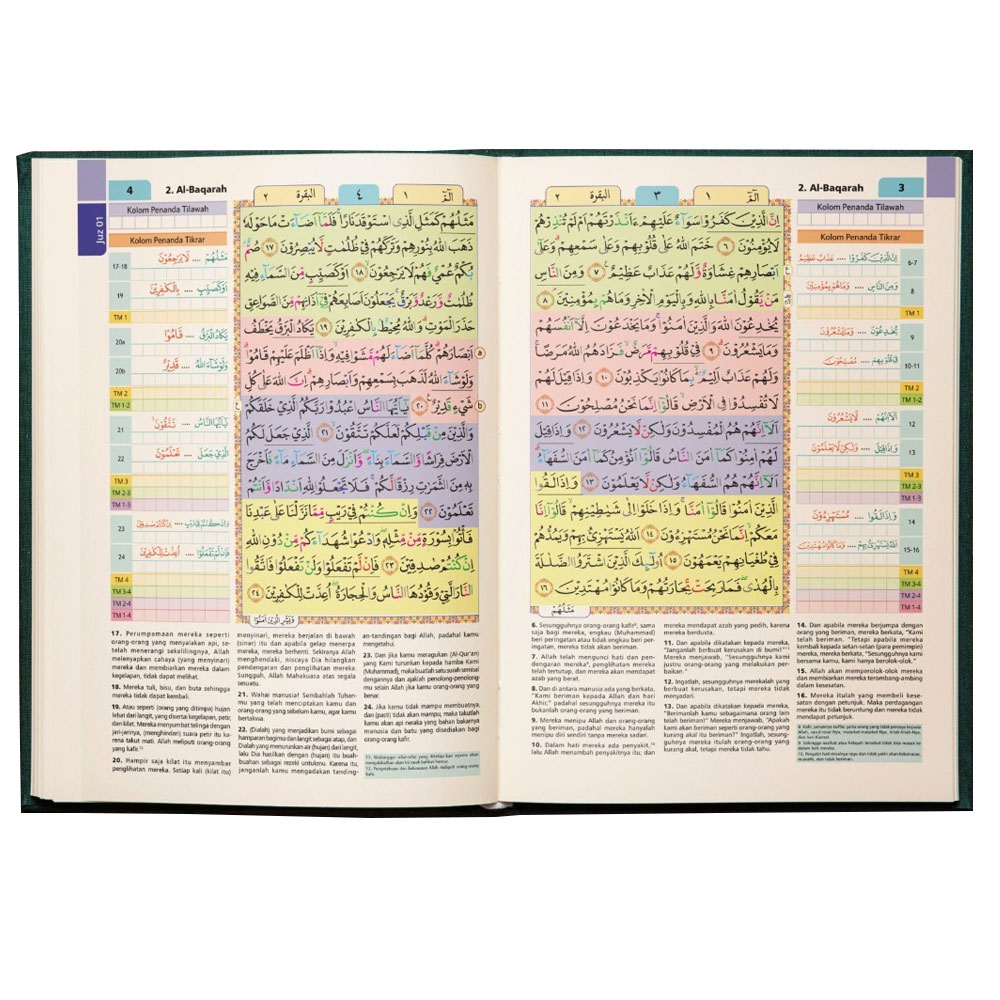 2. Al-Baqarah
3
Kolom Penanda Tilawah
Kolom Penanda Tikrar
اِنَّ الَّذِيْنَ كَفَرُوْا .... عَذَابٌ عَظِيْمٌ
6-7
وَمِنَ النَّاسِ .... وَمَا هُمْ بِمُؤْمِنِيْنَ
8
TM 1
يُخٰدِعُوْنَ .... وَمَا يَشْعُرُوْنَ
9
فِيْ قُلُوْبِهِمْ .... مُصْلِحُوْنَ
10-11
TM 2
TM 1-2
اَلَآ اِنَّهُمْ .... لَّا يَشْعُرُوْنَ
12
.... وَلٰكِنْ لَّا يَعْلَمُوْنَ
13
TM 3
TM 2-3
TM 1-3
وَاِذَا لَقُوا .... مُسْتَهْزِءُوْنَ
14
اَللّٰهُ يَسْتَهْزِئُ بِهِمْ .... وَمَا كَانُوْا مُهْتَدِيْنَ
15-16
TM 4
TM 3-4
TM 2-4
TM 1-4
الۤمّۤ ١
٣
البقرة ٢
اِنَّ الَّذِيْنَ كَفَرُوْا سَوَاۤءٌ عَلَيْهِمْ ءَاَنْذَرْتَهُمْ اَمْ لَمْ تُنْذِرْهُمْ
لَا يُؤْمِنُوْنَ ٦ خَتَمَ اللّٰهُ عَلٰى قُلُوْبِهِمْ وَعَلٰى سَمْعِهِمْ وَعَلٰٓى
اَبْصَارِهِمْ غِشَاوَةٌ وَّلَهُمْ عَذَابٌ عَظِيْمٌ ٧ وَمِنَ النَّاسِ
مَنْ يَّقُوْلُ اٰمَنَّا بِاللّٰهِ وَبِالْيَوْمِ الْاٰخِرِ وَمَا هُمْ بِمُؤْمِنِيْنَ ٨
يُخٰدِعُوْنَ اللّٰهَ وَالَّذِيْنَ اٰمَنُوْا وَمَا يَخْدَعُوْنَ اِلَّآ اَنْفُسَهُمْ
وَمَا يَشْعُرُوْنَ ٩ فِيْ قُلُوْبِهِمْ مَّرَضٌ فَزَادَهُمُ اللّٰهُ مَرَضًا
وَلَهُمْ عَذَابٌ اَلِيْمٌ بِمَا كَانُوْا يَكْذِبُوْنَ ١٠ وَاِذَا قِيْلَ لَهُمْ
لَا تُفْسِدُوْا فِى الْاَرْضِ قَالُوْٓا اِنَّمَا نَحْنُ مُصْلِحُوْنَ ١١
اَلَآ اِنَّهُمْ هُمُ الْمُفْسِدُوْنَ وَلٰكِنْ لَّا يَشْعُرُوْنَ ١٢ وَاِذَا قِيْلَ
لَهُمْ اٰمِنُوْا كَمَآ اٰمَنَ النَّاسُ قَالُوْٓا اَنُؤْمِنُ كَمَآ اٰمَنَ السُّفَهَاۤءُ
اَلَآ اِنَّهُمْ هُمُ السُّفَهَاۤءُ وَلٰكِنْ لَّا يَعْلَمُوْنَ ١٣ وَاِذَا لَقُوا
الَّذِيْنَ اٰمَنُوْا قَالُوْٓا اٰمَنَّا وَاِذَا خَلَوْا اِلٰى شَيٰطِيْنِهِمْ قَالُوْٓا اِنَّا
مَعَكُمْ اِنَّمَا نَحْنُ مُسْتَهْزِءُوْنَ ١٤ اَللّٰهُ يَسْتَهْزِئُ بِهِمْ وَيَمُدُّهُمْ
فِيْ طُغْيَانِهِمْ يَعْمَهُوْنَ ١٥ اُولٰۤىِٕكَ الَّذِيْنَ اشْتَرَوُا الضَّلٰلَةَ
بِالْهُدٰى فَمَا رَبِحَتْ تِّجَارَتُهُمْ وَمَا كَانُوْا مُهْتَدِيْنَ ١٦
مَثَلُهُمْ
6. Sesungguhnya orang-orang kafir⁸, sama
saja bagi mereka, engkau (Muhammad)
beri peringatan atau tidak engkau beri per-
ingatan, mereka tidak akan beriman.
7. Allah telah mengunci hati dan pen-
dengaran mereka⁹, penglihatan mereka
telah tertutup, dan mereka akan mendapat
azab yang berat.
8. Dan di antara manusia ada yang berkata,
"Kami beriman kepada Allah dan hari
Akhir," padahal sesungguhnya mereka itu
bukanlah orang-orang yang beriman.
9. Mereka menipu Allah dan orang-orang
yang beriman, padahal mereka hanyalah
menipu diri sendiri tanpa mereka sadari.
10. Dalam hati mereka ada penyakit,¹⁰
lalu Allah menambah penyakitnya itu; dan
mereka mendapat azab yang pedih, karena
mereka berdusta.
11. Dan apabila dikatakan kepada mereka,
"Janganlah berbuat kerusakan di bumi!"
Mereka menjawab, "Sesungguhnya kami
justru orang-orang yang melakukan per-
baikan."
12. Ingatlah, sesungguhnya merekalah yang
berbuat kerusakan, tetapi mereka tidak
menyadari.
13. Dan apabila dikatakan kepada mereka,
"Berimanlah kamu sebagaimana orang lain
telah beriman!" Mereka menjawab, "Apakah
kami akan beriman seperti orang-orang yang
kurang akal itu beriman?" Ingatlah, sesung-
guhnya mereka itulah orang-orang yang
kurang akal, tetapi mereka tidak tahu.
14. Dan apabila mereka berjumpa dengan
orang yang beriman, mereka berkata, "Kami
telah beriman." Tetapi apabila mereka
kembali kepada setan-setan (para pemimpin)
mereka, mereka berkata, "Sesungguhnya kami
bersama kamu, kami hanya berolok-olok."
15. Allah akan memperolok-olokkan mereka
dan membiarkan mereka terombang-ambing
dalam kesesatan.
16. Mereka itulah yang membeli kese-
satan dengan petunjuk. Maka perdagangan
mereka itu tidak beruntung dan mereka tidak
mendapat petunjuk.
4
2. Al-Baqarah
Juz 01
Kolom Penanda Tilawah
Kolom Penanda Tikrar
17-18
مَثَلُهُمْ .... لَا يَرْجِعُوْنَ
19
اَوْ كَصَيِّبٍ .... بِالْكٰفِرِيْنَ
TM 1
20a
يَكَادُ الْبَرْقُ .... قَامُوْا
20b
وَلَوْ شَاۤءَ اللّٰهُ .... قَدِيْرٌ
TM 2
TM 1-2
21
يٰٓاَيُّهَا النَّاسُ .... تَتَّقُوْنَ
22
الَّذِيْ جَعَلَ .... تَعْلَمُوْنَ
TM 3
TM 2-3
TM 1-3
23
وَاِنْ كُنْتُمْ فِيْ رَيْبٍ .... اِنْ كُنْتُمْ صٰدِقِيْنَ
24
فَاِنْ لَّمْ تَفْعَلُوْا .... اُعِدَّتْ لِلْكٰفِرِيْنَ
TM 4
TM 3-4
TM 2-4
TM 1-4
الۤمّۤ ١
٤
البقرة ٢
مَثَلُهُمْ كَمَثَلِ الَّذِى اسْتَوْقَدَ نَارًا فَلَمَّآ اَضَاۤءَتْ مَا حَوْلَهٗ
ذَهَبَ اللّٰهُ بِنُوْرِهِمْ وَتَرَكَهُمْ فِيْ ظُلُمٰتٍ لَّا يُبْصِرُوْنَ ١٧ صُمٌّۢ
بُكْمٌ عُمْيٌ فَهُمْ لَا يَرْجِعُوْنَ ١٨ اَوْ كَصَيِّبٍ مِّنَ السَّمَاۤءِ فِيْهِ
ظُلُمٰتٌ وَّرَعْدٌ وَّبَرْقٌ يَجْعَلُوْنَ اَصَابِعَهُمْ فِيْٓ اٰذَانِهِمْ مِّنَ الصَّوَاعِقِ
حَذَرَ الْمَوْتِ وَاللّٰهُ مُحِيْطٌۢ بِالْكٰفِرِيْنَ ١٩ يَكَادُ الْبَرْقُ يَخْطَفُ
اَبْصَارَهُمْ كُلَّمَآ اَضَاۤءَ لَهُمْ مَّشَوْا فِيْهِ وَاِذَآ اَظْلَمَ عَلَيْهِمْ قَامُوْا
a
وَلَوْ شَاۤءَ اللّٰهُ لَذَهَبَ بِسَمْعِهِمْ وَاَبْصَارِهِمْ اِنَّ اللّٰهَ عَلٰى كُلِّ
شَيْءٍ قَدِيْرٌ ٢٠ يٰٓاَيُّهَا النَّاسُ اعْبُدُوْا رَبَّكُمُ الَّذِيْ خَلَقَكُمْ
b
وَالَّذِيْنَ مِنْ قَبْلِكُمْ لَعَلَّكُمْ تَتَّقُوْنَ ٢١ الَّذِيْ جَعَلَ لَكُمُ
الْاَرْضَ فِرَاشًا وَّالسَّمَاۤءَ بِنَاۤءً وَّاَنْزَلَ مِنَ السَّمَاۤءِ مَاۤءً فَاَخْرَجَ
بِهٖ مِنَ الثَّمَرٰتِ رِزْقًا لَّكُمْ فَلَا تَجْعَلُوْا لِلّٰهِ اَنْدَادًا وَّاَنْتُمْ
تَعْلَمُوْنَ ٢٢ وَاِنْ كُنْتُمْ فِيْ رَيْبٍ مِّمَّا نَزَّلْنَا عَلٰى عَبْدِنَا
فَأْتُوْا بِسُوْرَةٍ مِّنْ مِّثْلِهٖ وَادْعُوْا شُهَدَاۤءَكُمْ مِّنْ دُوْنِ اللّٰهِ
اِنْ كُنْتُمْ صٰدِقِيْنَ ٢٣ فَاِنْ لَّمْ تَفْعَلُوْا وَلَنْ تَفْعَلُوْا فَاتَّقُوا
النَّارَ الَّتِيْ وَقُوْدُهَا النَّاسُ وَالْحِجَارَةُ اُعِدَّتْ لِلْكٰفِرِيْنَ ٢٤
وَبَشِّرِ الَّذِيْنَ اٰمَنُوْا
17. Perumpamaan mereka seperti
orang-orang yang menyalakan api, se-
telah menerangi sekelilingnya, Allah
melenyapkan cahaya (yang menyinari)
mereka dan membiarkan mereka dalam
kegelapan, tidak dapat melihat.
18. Mereka tuli, bisu, dan buta sehingga
mereka tidak dapat kembali.
19. Atau seperti (orang yang ditimpa) hujan
lebat dari langit, yang disertai kegelapan, petir,
dan kilat. Mereka menyumbat telinga dengan
jari-jarinya, (menghindari) suara petir itu ka-
rena takut mati. Allah meliputi orang-orang
yang kafir.¹¹
20. Hampir saja kilat itu menyambar
penglihatan mereka. Setiap kali (kilat itu)
menyinari, mereka berjalan di bawah
(sinar) itu dan apabila gelap menerpa
mereka, mereka berhenti. Sekiranya Allah
menghendaki, niscaya Dia hilangkan
pendengaran dan penglihatan mereka.
Sungguh, Allah Mahakuasa atas segala
sesuatu.
21. Wahai manusia! Sembahlah Tuhan-
mu yang telah menciptakan kamu dan
orang-orang yang sebelum kamu, agar kamu
bertakwa.
22. (Dialah) yang menjadikan bumi sebagai
hamparan bagimu dan langit sebagai atap, dan
Dialah yang menurunkan air (hujan) dari langit,
lalu Dia hasilkan dengan (hujan) itu buah-
buahan sebagai rezeki untukmu. Karena itu,
janganlah kamu mengadakan tanding-
an-tandingan bagi Allah, padahal kamu
mengetahui.
23. Dan jika kamu meragukan (Al-Qur'an)
yang Kami turunkan kepada hamba Kami
(Muhammad), maka buatlah satu surah semisal
dengannya dan ajaklah penolong-penolong-
mu selain Allah jika kamu orang-orang yang
benar.
24. Jika kamu tidak mampu membuatnya,
dan (pasti) tidak akan mampu, maka takutlah
kamu akan api neraka yang bahan bakarnya
manusia dan batu yang disediakan bagi
orang-orang kafir.